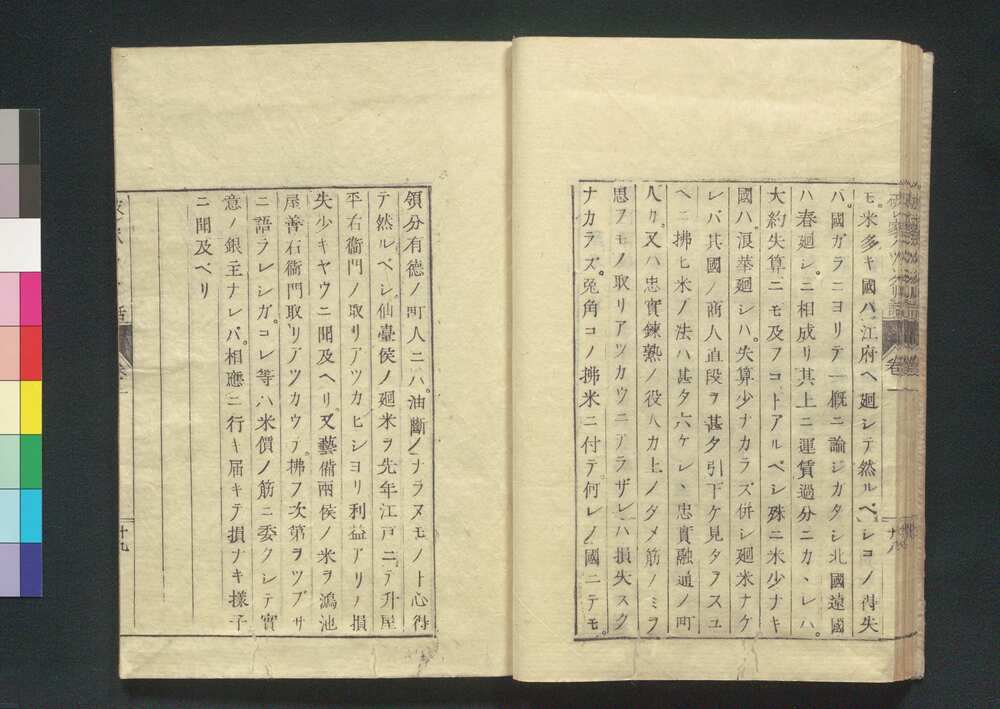 モ。米多キ國ハ、江府ヘ廻シテ然ルベシコノ得失
ハ。國ガラニヨリテ一概ニ論ジガタシ北國遠國
ハ春廻シ。ニ相成リ其上ニ運賃過分ニカヽレハ。
大約失算ニモ及フコトアルベシ殊ニ米少ナキ
國ハ浪華廻シハ。失算少ナカラズ併シ廻米ナケ
レバ其國ノ商人直段ヲ甚タ引下ケ見タヲスユ
ヘニ拂ヒ米ノ法ハ甚タ六ケシヽ忠實融通ノ町
人カ。又ハ忠實鍊熟ノ役人カ上ノタメ筋ノミヲ
思フモノ取リアツカウニアラザレハ損失スク
ナカラズ。兔角コノ拂米ニ付テ。何レノ國ニテモ。
卷一
十八
領分有德ノ町人ニハ。油斷ノナラヌモノト心得
テ然ルベシ仙臺侯ノ廻米ヲ先年江戸ニテ升屋
平右衞門ノ取リアツカヒシヨリ利益アリノ損
失少キヤウニ聞及ヘリ。又藝備兩侯ノ米ヲ鴻池
屋善右衞門取リアツカウテ。拂フ次第ヲツブサ
ニ語ラレシガ。コレ等ハ米價ノ筋ニ委クシテ實
意ノ銀主ナレバ。相應ニ行キ届キテ損ナキ樣子
ニ聞及ベリ
十九